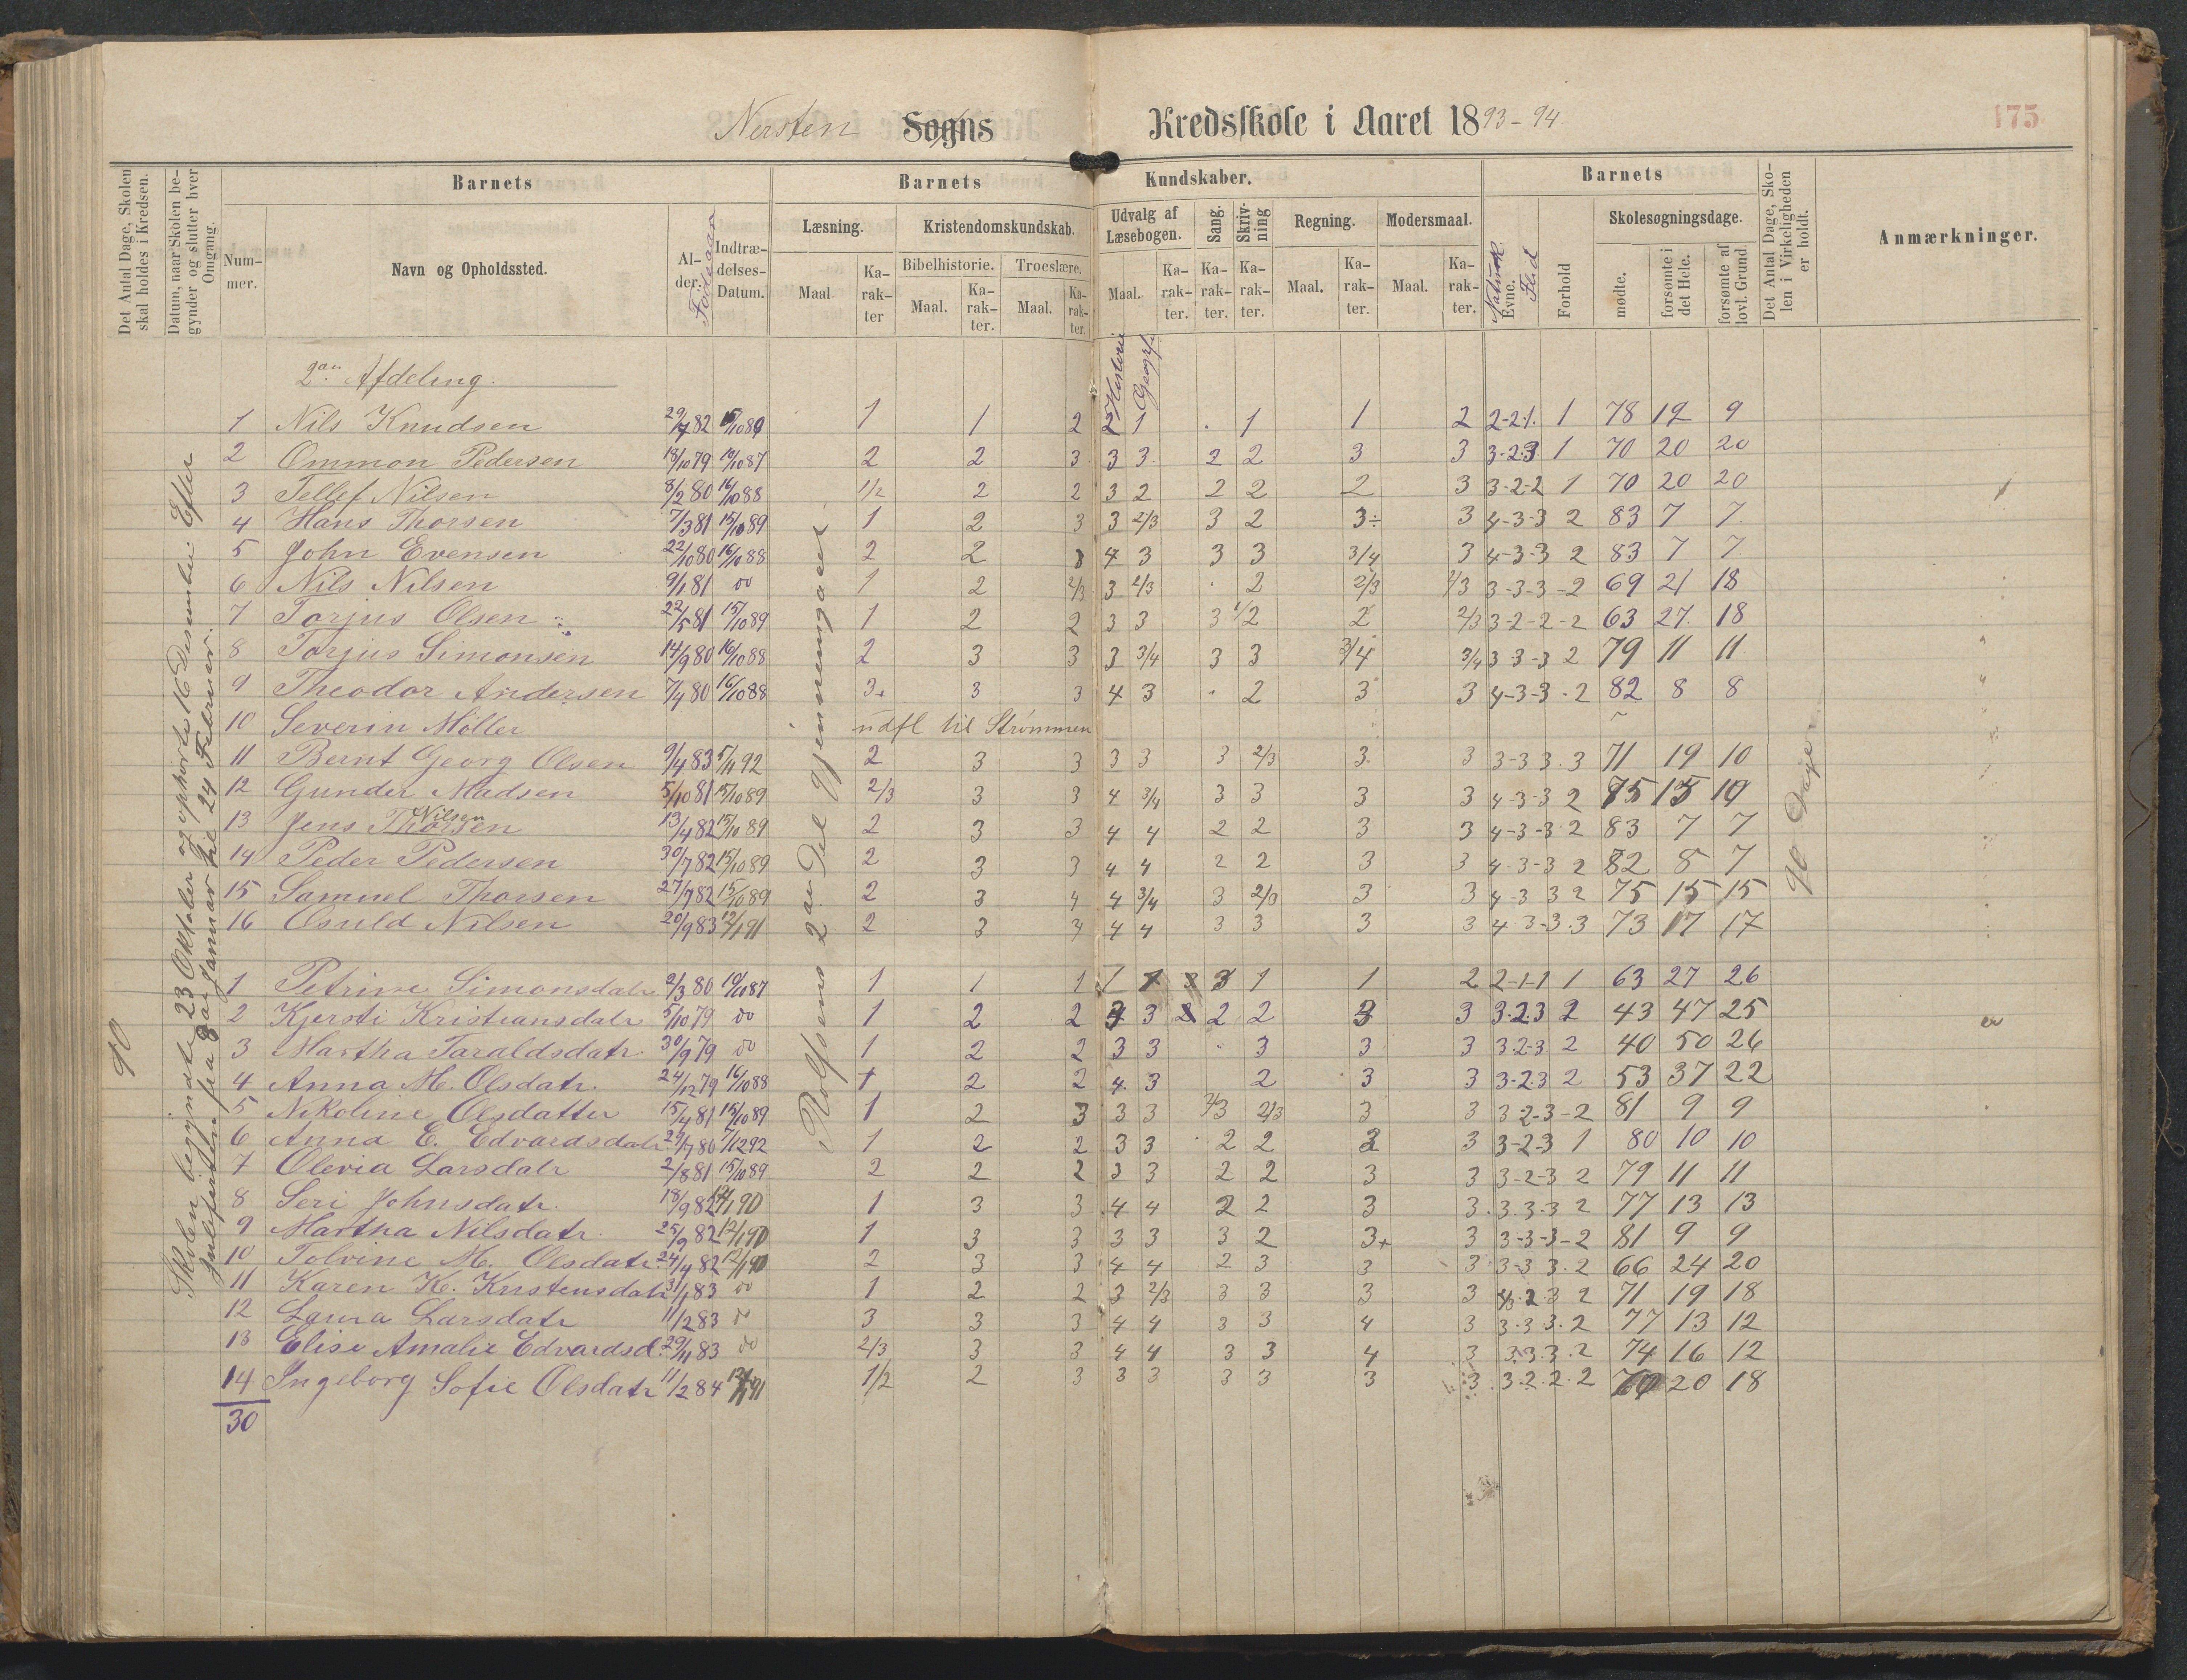 Nersten Sogns Kredsskole i Aaret 1893-94
175
Det Antal Dage, Skolen skal holdes i Kredsen.
Datum, naar Skolen begynder og slutter hver Omgang.
Barnets
Nummer.
Navn og Opholdssted.
Alder. Födselsaar
Indtrædelses-Datum.
Barnets Kundskaber.
Læsning.
Maal. Karakter
Kristendomskundskab.
Bibelhistorie. Maal. Karakter.
Troeslære. Maal. Karakter.
Udvalg af Læsebogen. Maal. Karakter.
Historie Geografi
Sang. Karakter.
Skrivning Karakter.
Regning. Maal. Karakter.
Modersmaal. Maal. Karakter.
Barnets
Evne. Flid
Forhold
Skolesøgningsdage.
mødte. forsømte i det Hele. forsømte af lovl. Grund
Det Antal Dage, Skolen i Virkeligheden er holdt.
Anmærkninger.
90
Skolen begyndte 23 Oktober og ophørte 16 Desember. Efter
Juleferien fra 8de Januar til 24 Februar.
Rolfsens 2den Del gjennemgaaet
90 Dage
2den Afdeling.
1 Nils Knudsen 29/7 82 15/10 89 1 1 2 2 1 1 1 2 2-2-1 1 78 12 9
2 Ommon Pedersen 18/10 79 10/10 87 2 2 3 3 3 2 2 3 3 3-2-3 1 70 20 20
3 Tellef Nilsen 8/2 80 16/10 88 1/2 2 2 3 2 2 2 2 3 3-2-2 1 70 20 20
4 Hans Thorsen 7/3 81 15/10 89 1 2 3 3 2/3 3 2 3÷ 3 4-3-3 2 83 7 7
5 John Evensen 22/10 80 16/10 88 2 2 3 4 3 3 3 3/4 3 4-3-3 2 83 7 7
6 Nils Nilsen 9/1 81 do 1 2 2/3 3 2/3 2 2/3 2/3 3-3-3-2 69 21 18
7 Torjus Olsen 22/5 81 15/10 89 1 2 2 3 3 3 1/2 2 2/3 3-2-2-2 63 27 18
8 Torjus Simonsen 14/9 80 16/10 88 2 3 3 3 3/4 3 3 3/4 3/4 3 3-3 2 79 11 11
9 Theodor Andersen 7/4 80 16/10 88 3+ 3 3 4 3 2 3 3 4-3-3-2 82 8 8
10 Severin Möller udfl til Strømmen
11 Bernt Georg Olsen 9/4 83 5/11 92 2 3 3 3 3 3 2/3 3 3 3-3 3-3 71 19 10
12 Gunder Madsen 5/10 81 15/10 89 2/3 3 3 4 3/4 3 3 3 3 4-3-3 2 75 15 10
13 Jens Thorsen Nilsen 13/4 82 15/10 89 2 3 3 4 4 2 2 3 3 4-3-3 2 83 7 7
14 Peder Pedersen 30/7 82 15/10 89 2 3 3 4 4 2 2 3 3 4-3-3 2 82 8 7
15 Samuel Thorsen 27/7 82 15/10 89 2 3 4 4 3/4 3 2/3 3 3 4-3 3 2 75 15 15
16 Osuld Nilsen 20/9 83 12/1 91 2 3 4 4 4 3 3 3 3 4 3-3-3 73 17 17
1 Petrine Simonsdatr 2/3 80 10/10 87 1 1 1 1 1 3 1 1 2 2-1-1 1 63 27 26
2 Kjersti Kristiansdatr 5/10 79 do 1 2 2 3 3 2 2 3 3 3-2-3 2 43 47 25
3 Martha Taraldsdatr. 30/9 79 do 1 2 2 3 3 3 3 3 3-2-3 2 40 50 26
4 Anna M. Olsdatr. 24/12 79 16/10 88 1 2 2 4 3 2 3 3 3-2-3 2 53 37 22
5 Nikoline Olsdatter 15/4 81 15/10 89 1 2 3 3 3 2/3 2/3 3 3 3-2-3-2 81 9 9
6 Anna E. Edvardsdatr 29/7 80 7/12 92 1 2 2 3 3 2 2 3 3 3-2-3 1 80 10 10
7 Olevia Larsdatr 2/8 81 15/10 89 2 2 2 3 3 2 2 3 3 3-2-3 2 79 11 11
8 Seri Johnsdatr. 18/9 82 12/1 90 1 3 3 4 4 2 2 3 3 3-3-3 2 77 13 13
9 Martha Nilsdatr. 25/9 82 12/1 90 1 3 3 3 3 3 2 3+ 3 3-3-3-2 81 9 9
10 Tolvine M. Olsdatr. 24/4 82 12/1 90 2 3 3 4 4 2 3 3 3 3-3 3-2 66 24 20
11 Karen K. Kristensdatr 3/1 83 do 1 2 2 3 2/3 3 3 3 3 4/3-2-3 2 71 19 18
12 Laura Larsdatr 11/2 83 do 3 3 3 4 4 3 3 4 3 3-3 3-2 77 13 12
13 Elise Amalie Edvardsd. 29/11 83 do 2/3 3 3 4 4 3 3 4 3 3-3-3-2 74 16 12
14 Ingeborg Sofie Olsdatr 11/2 84 12/1 91 1/2 2 3 3 3 3 3 3 3 3-2-2-2 70 20 18
30